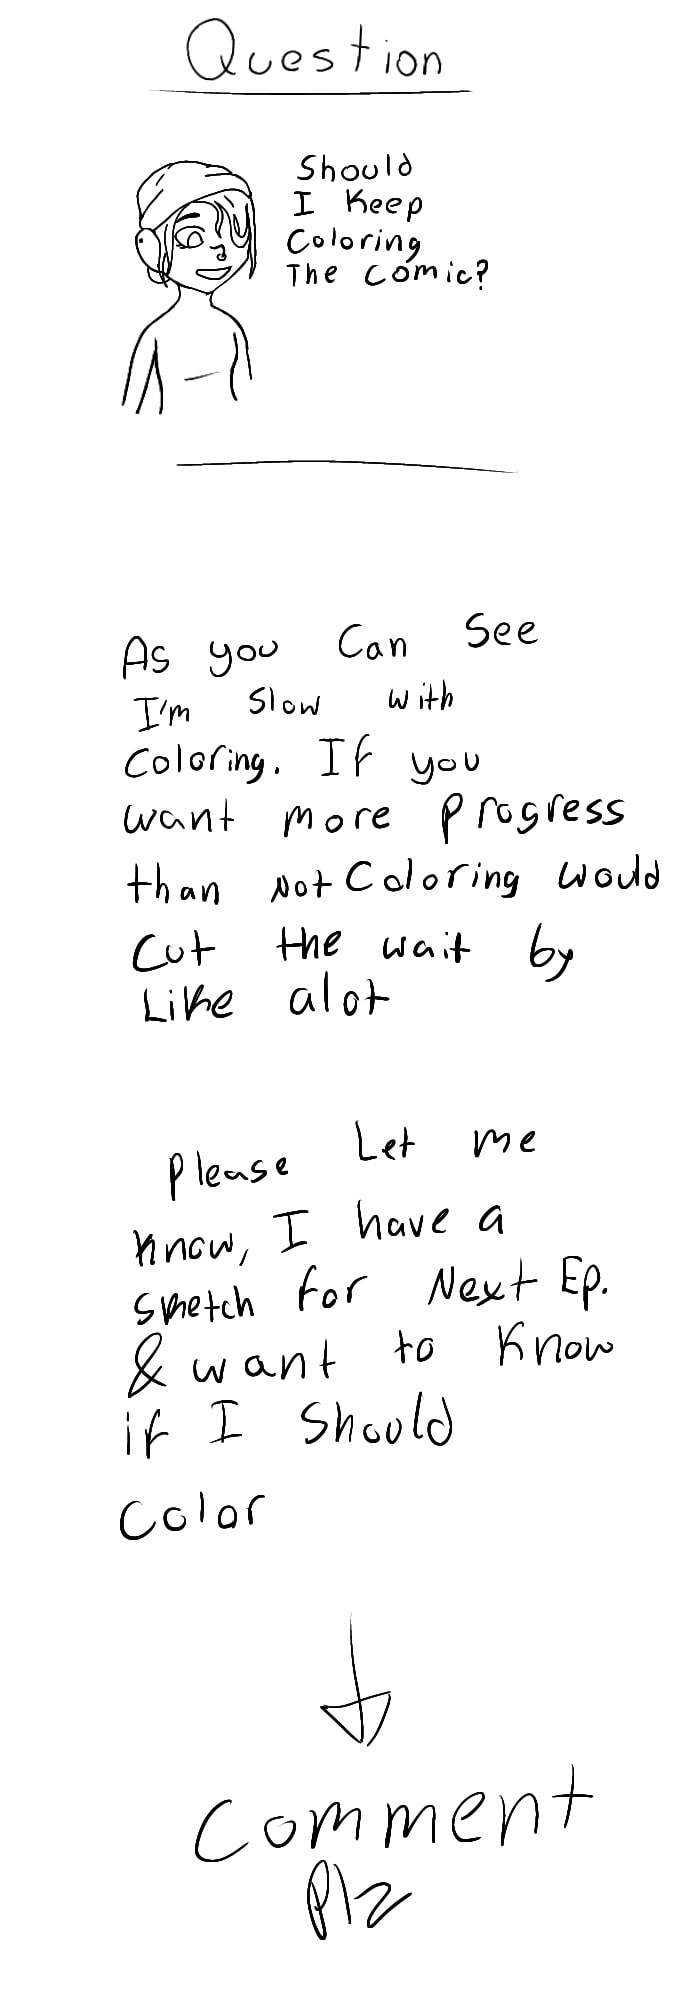 Question
Should
I Keep
Coloring
The Comic?
As you Can See
I'm Slow with
Coloring. If you
want more Progress
than Not Coloring Would
Cut the wait by
Like alot
Please Let me
know, I have a
sketch for Next Ep.
& want to Know
if I Should
Color
Comment
Plz